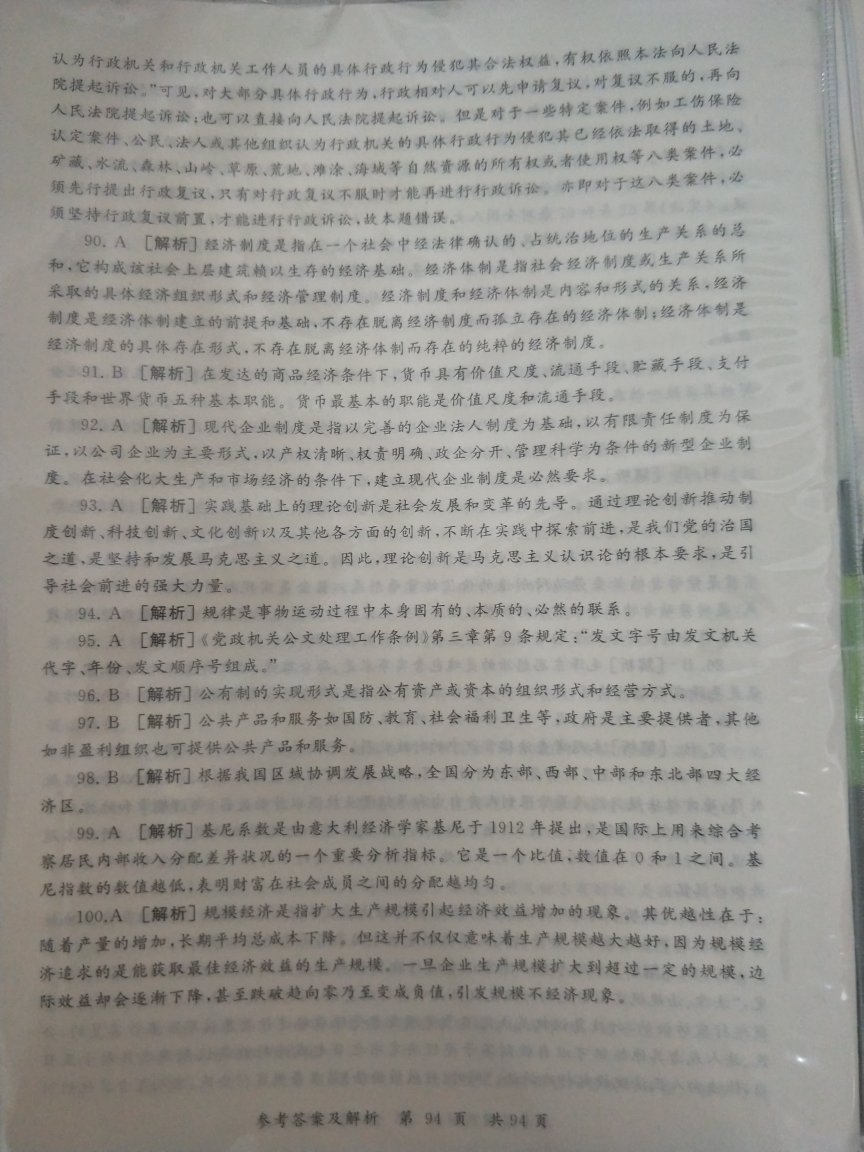 认为行政机关和行政机关工作人员的具体行政行为侵犯其合法权益,有权依照本法向人民法
院提起诉讼。”可见,对大部分具体行政行为,行政相对人可以先申请复议,对复议不服的,再向
人民法院提起诉讼;也可以直接向人民法院提起诉讼。但是对于一些特定案件,例如工伤保险
认定案件、公民、法人或其他组织认为行政机关的具体行政行为侵犯其已经依法取得的土地、
矿藏、水流、森林、山岭、草原、荒地、滩涂、海域等自然资源的所有权或者使用权等八类案件,必
须先行提出行政复议,只有对行政复议不服时才能再进行行政诉讼。亦即对于这八类案件,必
须坚持行政复议前置,才能进行行政诉讼,故本题错误。
90. A [解析]经济制度是指在一个社会中经法律确认的、占统治地位的生产关系的总
和,它构成该社会上层建筑赖以生存的经济基础。经济体制是指社会经济制度或生产关系所
采取的具体经济组织形式和经济管理制度。经济制度和经济体制是内容和形式的关系,经济
制度是经济体制建立的前提和基础,不存在脱离经济制度而孤立存在的经济体制;经济体制是
经济制度的具体存在形式,不存在脱离经济体制而存在的纯粹的经济制度。
91. B [解析]在发达的商品经济条件下,货币具有价值尺度、流通手段、贮藏手段、支付
手段和世界货币五种基本职能。货币最基本的职能是价值尺度和流通手段。
92. A [解析]现代企业制度是指以完善的企业法人制度为基础,以有限责任制度为保
证,以公司企业为主要形式,以产权清晰、权责明确、政企分开、管理科学为条件的新型企业制
度。在社会化大生产和市场经济的条件下,建立现代企业制度是必然要求。
93. A [解析]实践基础上的理论创新是社会发展和变革的先导。通过理论创新推动制
度创新、科技创新、文化创新以及其他各方面的创新,不断在实践中探索前进,是我们党的治国
之道,是坚持和发展马克思主义之道。因此,理论创新是马克思主义认识论的根本要求,是引
导社会前进的强大力量。
94. A [解析]规律是事物运动过程中本身固有的、本质的、必然的联系。
95. A [解析]《党政机关公文处理工作条例》第三章第9条规定:“发文字号由发文机关
代字、年份、发文顺序号组成。”
96. B [解析]公有制的实现形式是指公有资产或资本的组织形式和经营方式。
97. B [解析]公共产品和服务如国防、教育、社会福利卫生等,政府是主要提供者,其他
如非盈利组织也可提供公共产品和服务。
98. B [解析]根据我国区域协调发展战略,全国分为东部、西部、中部和东北部四大经
济区。
99. A [解析]基尼系数是由意大利经济学家基尼于1912年提出,是国际上用来综合考
察居民内部收入分配差异状况的一个重要分析指标。它是一个比值,数值在0和1之间。基
尼指数的数值越低,表明财富在社会成员之间的分配越均匀。
100.A [解析]规模经济是指扩大生产规模引起经济效益增加的现象。其优越性在于:
随着产量的增加,长期平均总成本下降。但这并不仅仅意味着生产规模越大越好,因为规模经
济追求的是能获取最佳经济效益的生产规模。一旦企业生产规模扩大到超过一定的规模,边
际效益却会逐渐下降,甚至跌破趋向零乃至变成负值,引发规模不经济现象。
参考答案及解析 第 94 页 共 94 页